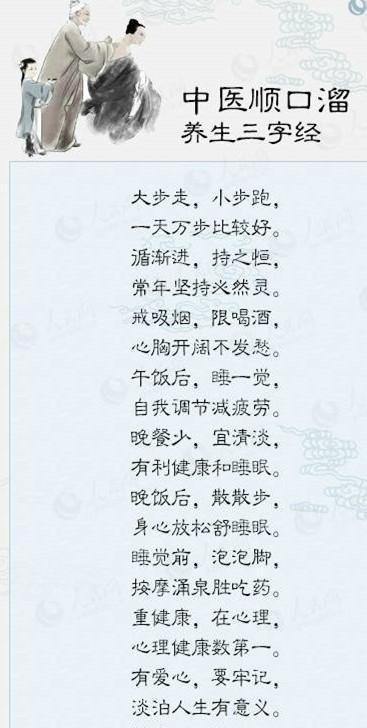 中医顺口溜
养生三字经
大步走，小步跑，
一天万步比较好。
循渐进，持之恒，
常年坚持必然灵。
戒吸烟，限喝酒，
心胸开阔不发愁。
午饭后，睡一觉，
自我调节减疲劳。
晚餐少，宜清淡，
有利健康和睡眠。
晚饭后，散散步，
身心放松舒睡眠。
睡觉前，泡泡脚，
按摩涌泉胜吃药。
重健康，在心理，
心理健康数第一。
有爱心，要牢记，
淡泊人生有意义。